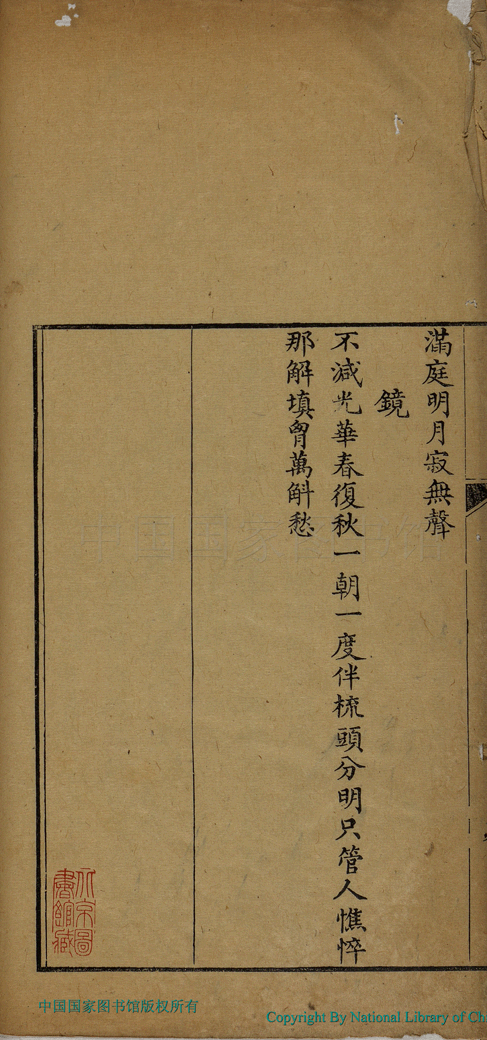 滿庭明月寂無聲
鏡
不減光華春復秋一朝一度伴梳頭分明只管人憔悴
那解填胷萬斛愁
北京圖書館藏
中国国家图书馆版权所有
Copyright By National Library of Ch